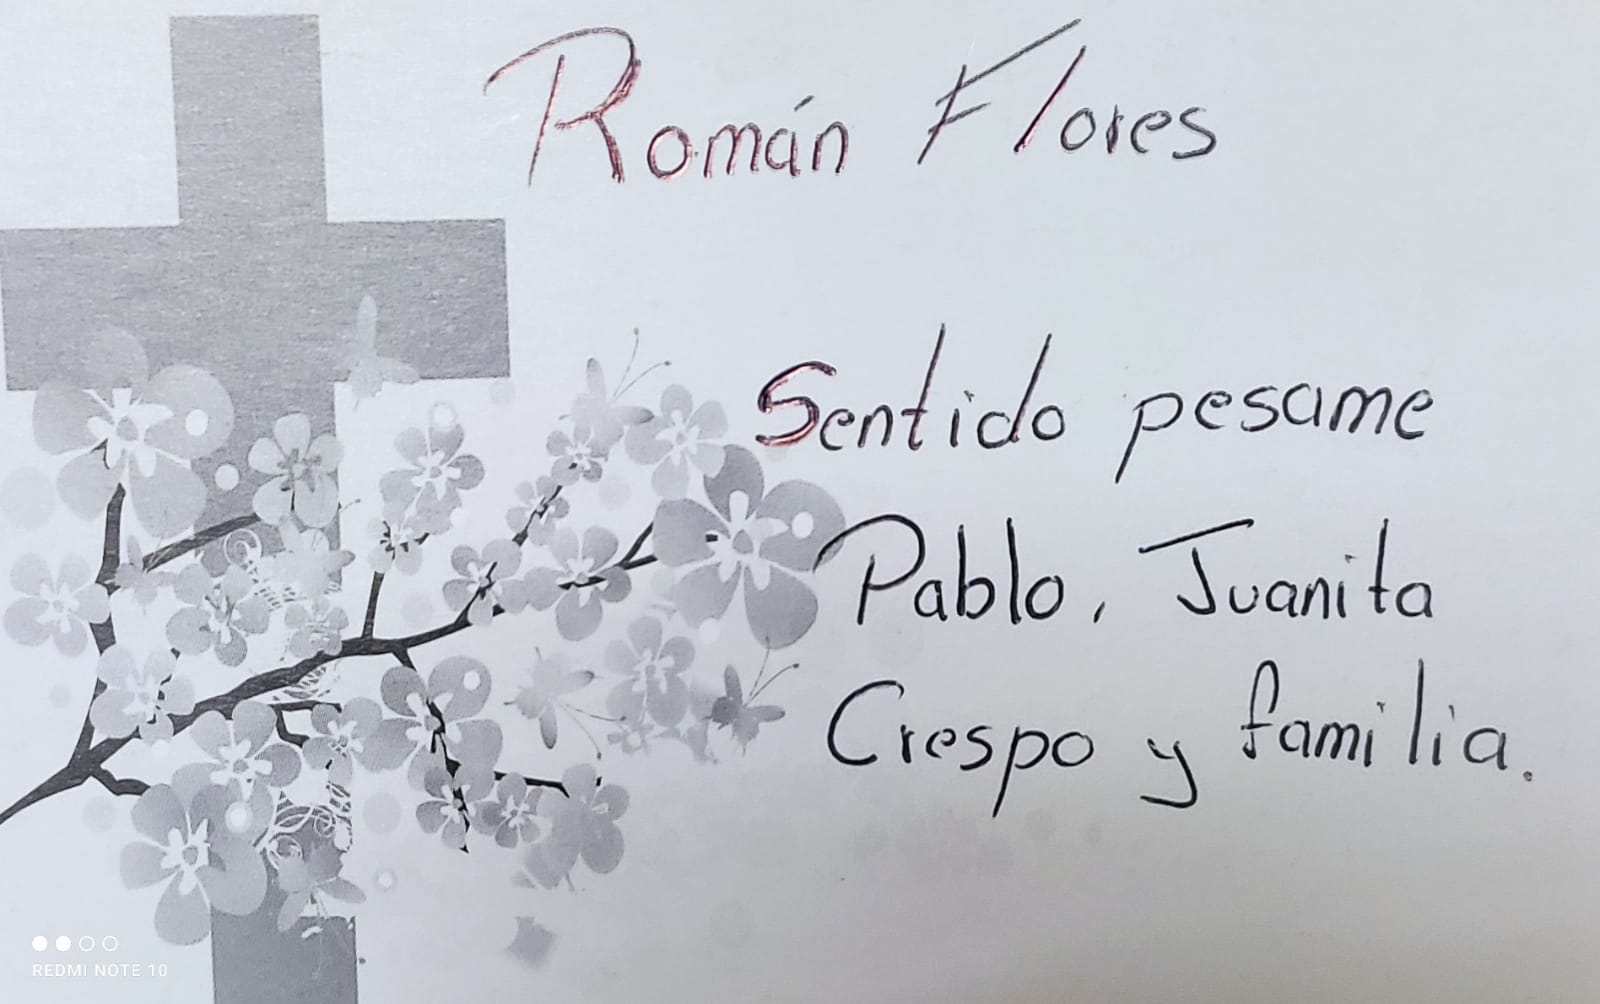 Román Flores
Sentido pesame
Pablo, Juanita
Crespo y familia.
REDMI NOTE 10